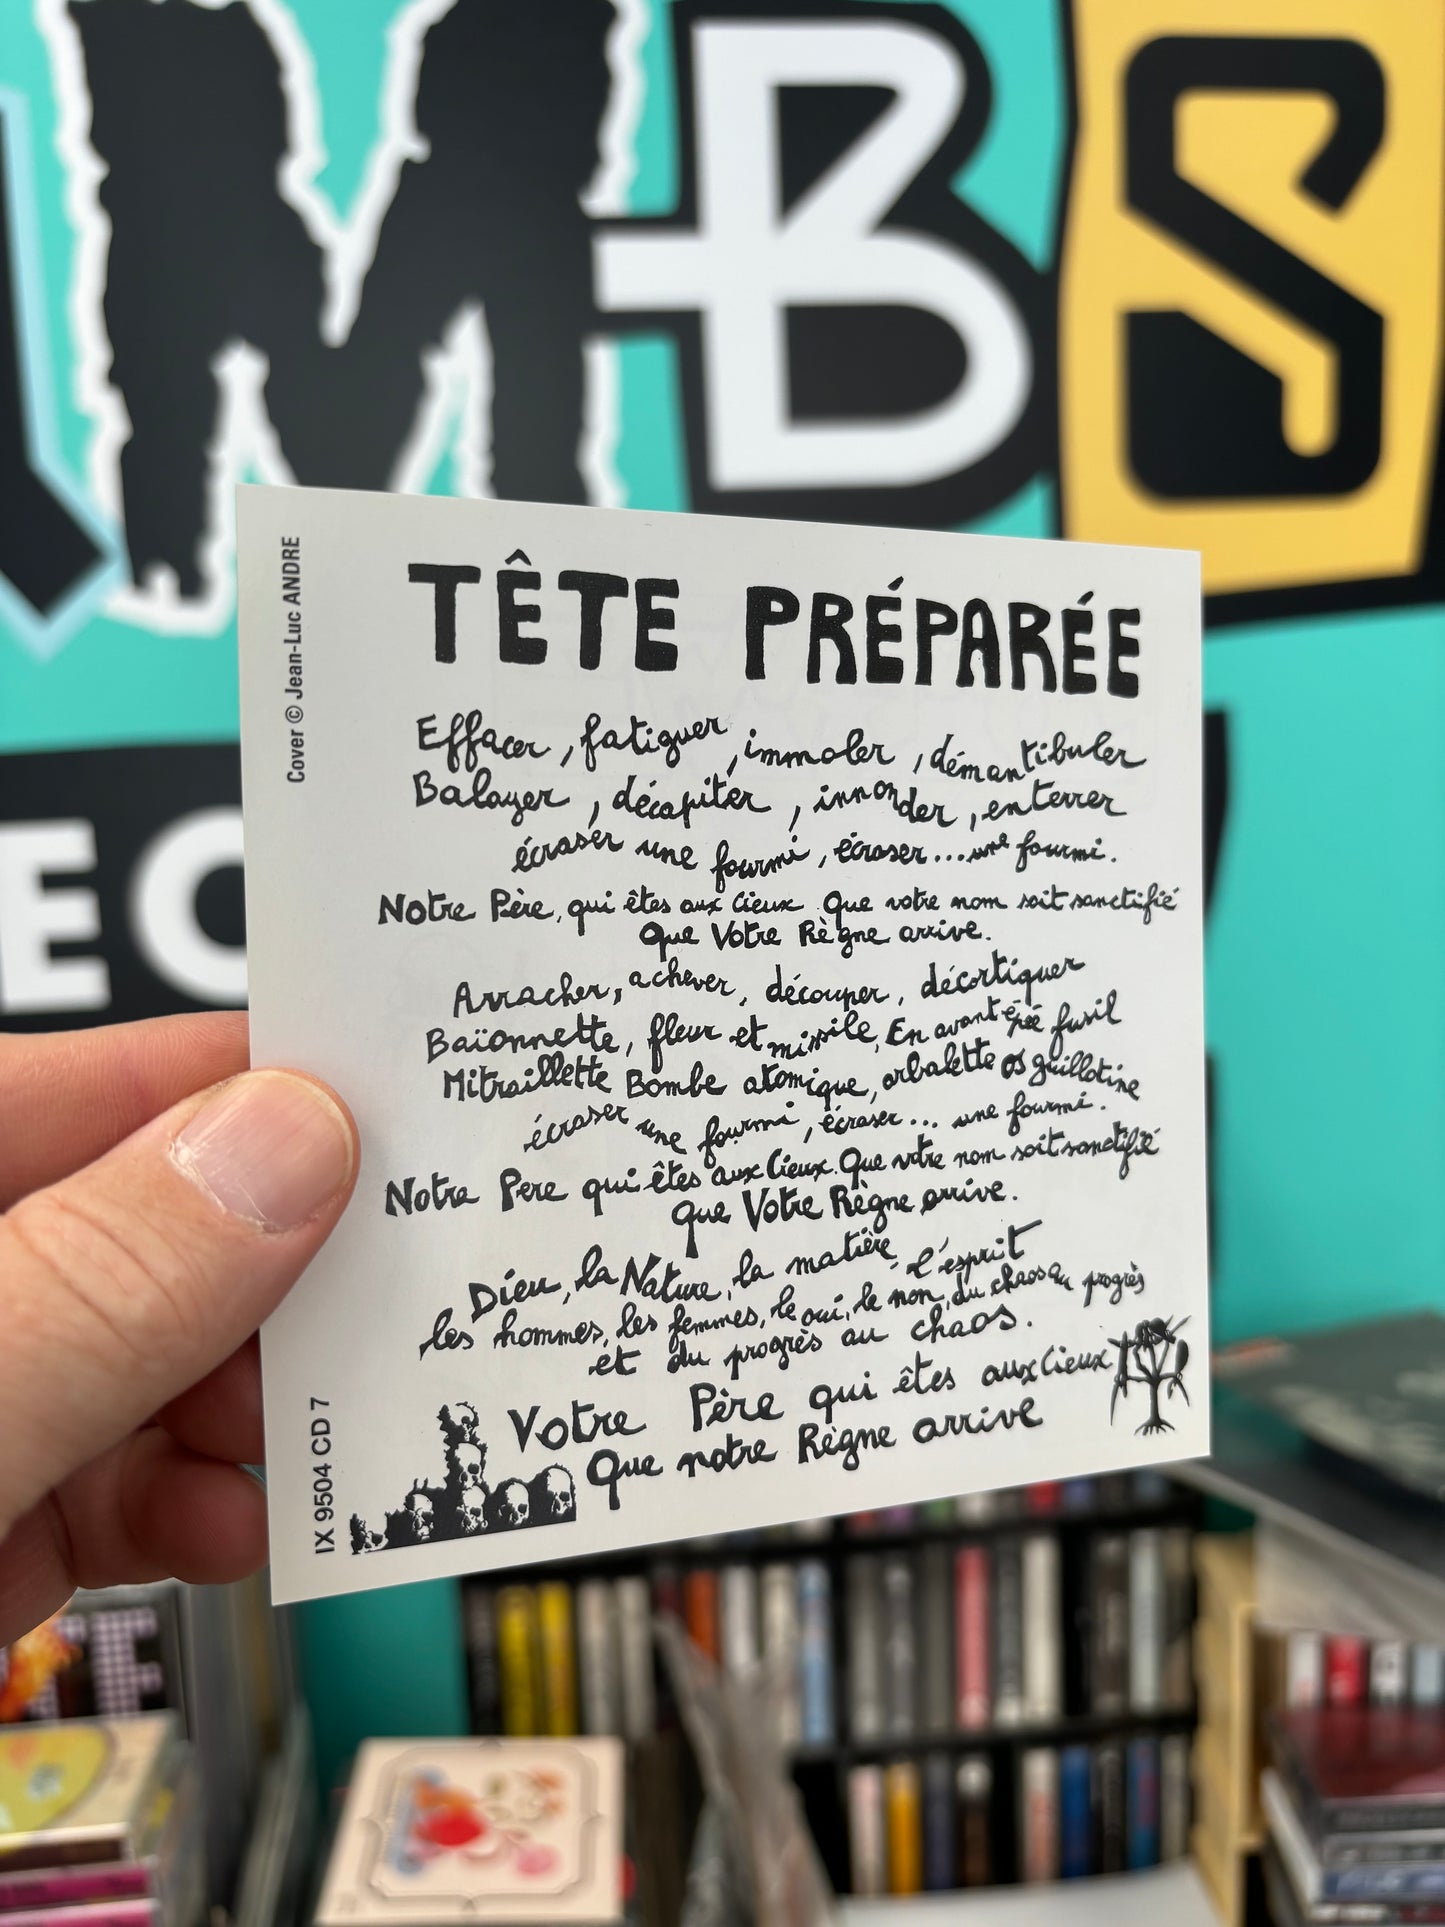 MBS
EC
Cover © Jean-Luc ANDRE
TÊTE PRÉPARÉE
Effacer, fatiguer, immoler, démantibuler
Balayer, décapiter, innonder, enterrer
écraser une fourmi, écraser...une fourmi.
Notre Père, qui êtes aux Cieux Que votre nom soit sanctifié
Que Votre Règne arrive.
Arracher, achever, découper, décortiquer
Baïonnette, fleur et missile, En avant épée fusil
Mitraillette Bombe atomique, arbalette os guillotine
écraser une fourmi, écraser... une fourmi.
Notre Père qui êtes aux Cieux. Que votre nom soit sanctifié
Que Votre Règne arrive.
Dieu, la Nature, la matière, l'esprit
les hommes, les femmes, le oui, le non, du chaos au progrès
et du progrès au chaos.
Votre Père qui êtes aux Cieux
Que notre Règne arrive
IX 9504 CD 7